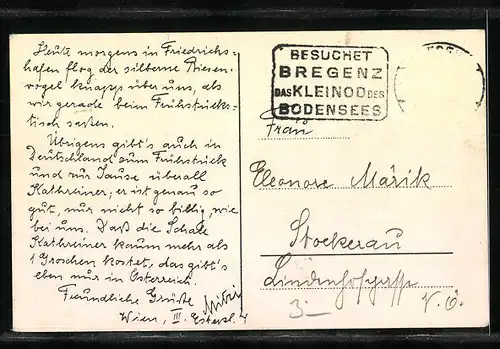 Heute morgens in Friedrichs=
hafen flog der silberne Riesen-
vogel knapp über uns, als
wir gerade beim Frühstücks-
tisch saßen.
Übrigens gibt's auch in
Deutschland zum Frühstück
und zur Jause überall
Kathreiner; er ist genau so
gut, nur nicht so billig wie
bei uns. Daß die Schale
Kathreiner kaum mehr als
1 Groschen kostet, das gibt's
eben nur in Österreich.
Freundliche Grüße
Mitzi
Wien, III.
BESUCHET
BREGENZ
DAS KLEINOD DES
BODENSEES
Frau
Eleonore Márik
Stockerau
Lindenhofgasse
3- N.Ö.